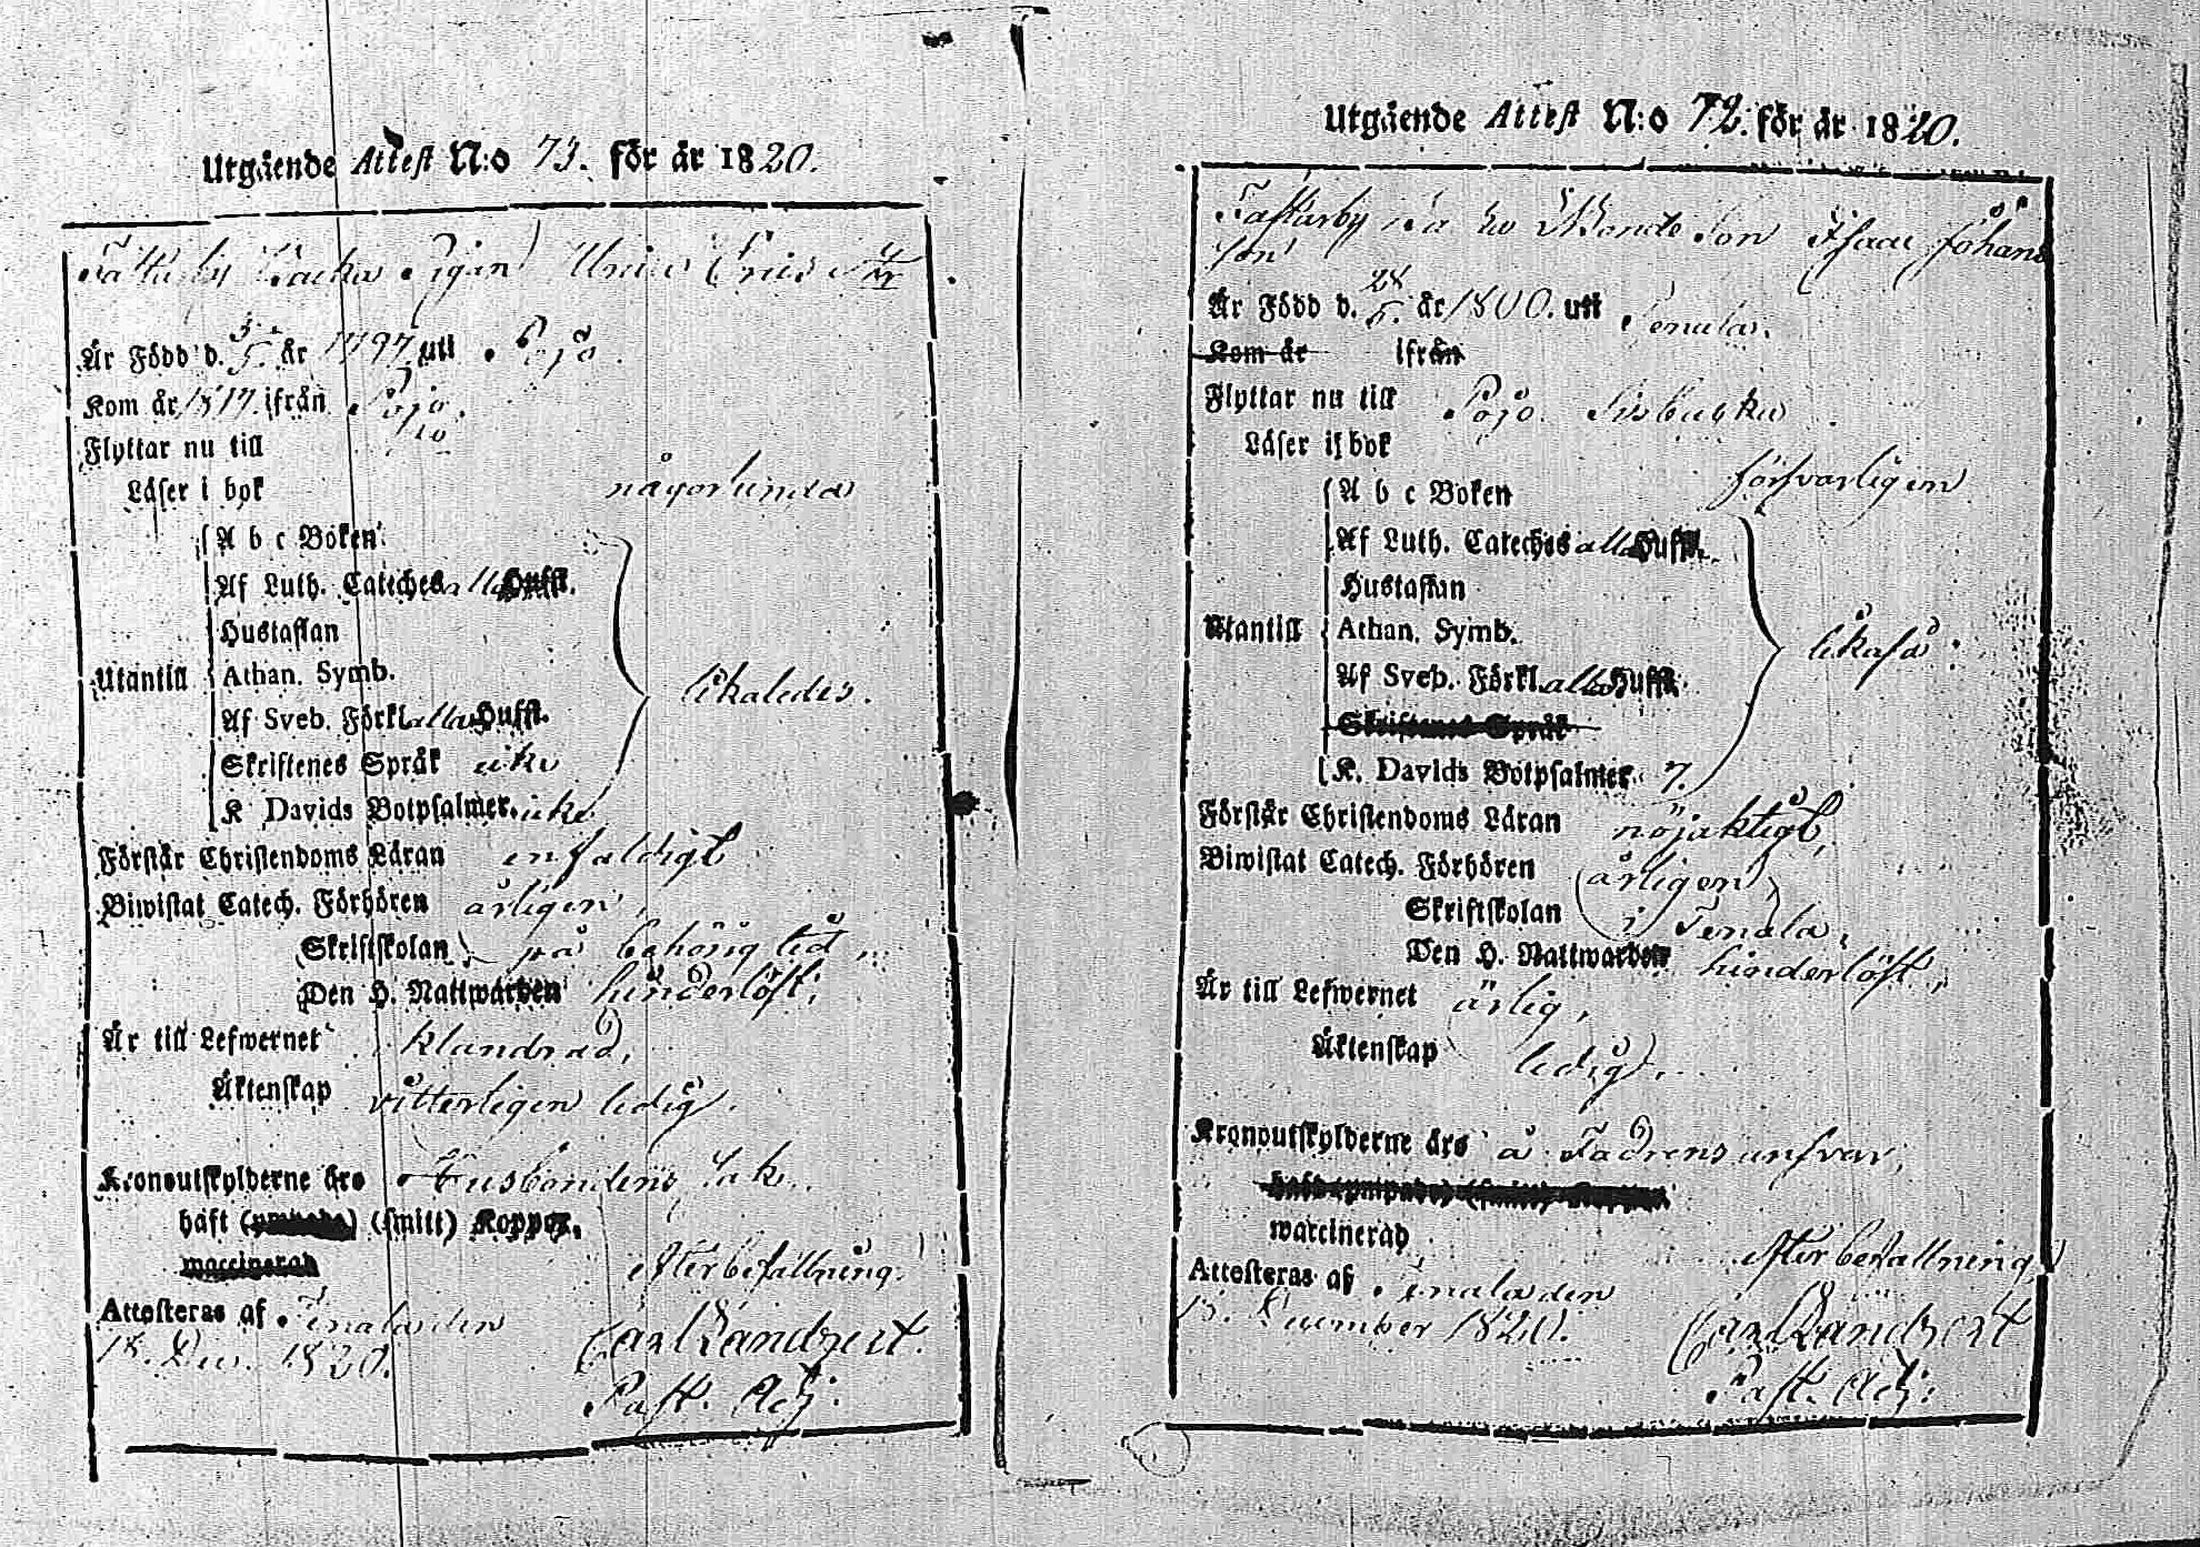 Utgående Attest N:o 73. för år 1820.
Backa Pigan
Är Född d. 3/5. år 1797. uti Pojo.
Kom år 1817. ifrån Pojo.
Flyttar nu till
Läser i bok någorlunda
A b c Boken
Af Luth. Cateches alla Hufst.
Hustaflan
Utantill Athan. Symb. likaledes.
Af Sveb. Förkl. alla Hufst.
Skriftenes Språk icke
K Davids Botpsalmer. icke
Förstår Christendoms Läran enfaldigt
Biwistat Catech. Förhören årligen,
Skriftskolan på behörig tid,
Den H. Nattwarden hinderlöst,
Är till Lefwernet klandrad,
Äktenskap vitterligen ledig.
Kronoutskylderne äro Husbondens sak.
haft (smitt) Koppor.
waccinerad
efter befallning
Attesteras af Tenala den
18. Dec. 1820.
Carl Sandzert.
Past. Adj:
Utgående Attest N:o 72. för år 1820.
Bonde Son Isaac Johans
son
Är Född d. 28/5. år 1800. uti Tenala.
Kom år ifrån
Flyttar nu till Pojo
Läser i bok
försvarligen
A b c Boken
Af Luth. Cateches alla Hufst.
Hustaflan
Utantill Athan. Symb. likaså
Af Sveb. Förkl. alla Hufst.
Skriftenes Språk
K. Davids Botpsalmer. 7.
Förstår Christendoms Läran nöjaktigt,
Biwistat Catech. Förhören årligen
Skriftskolan i Tenala,
Den H. Nattwarden hinderlöst,
Är till Lefwernet ärlig,
Äktenskap ledig.
Kronoutskylderne äro å Fadrens ansvar,
waccinerad
efter befallning
Attesteras af Tenala den
December 1820.
Carl Sandzert
Past. Adj: